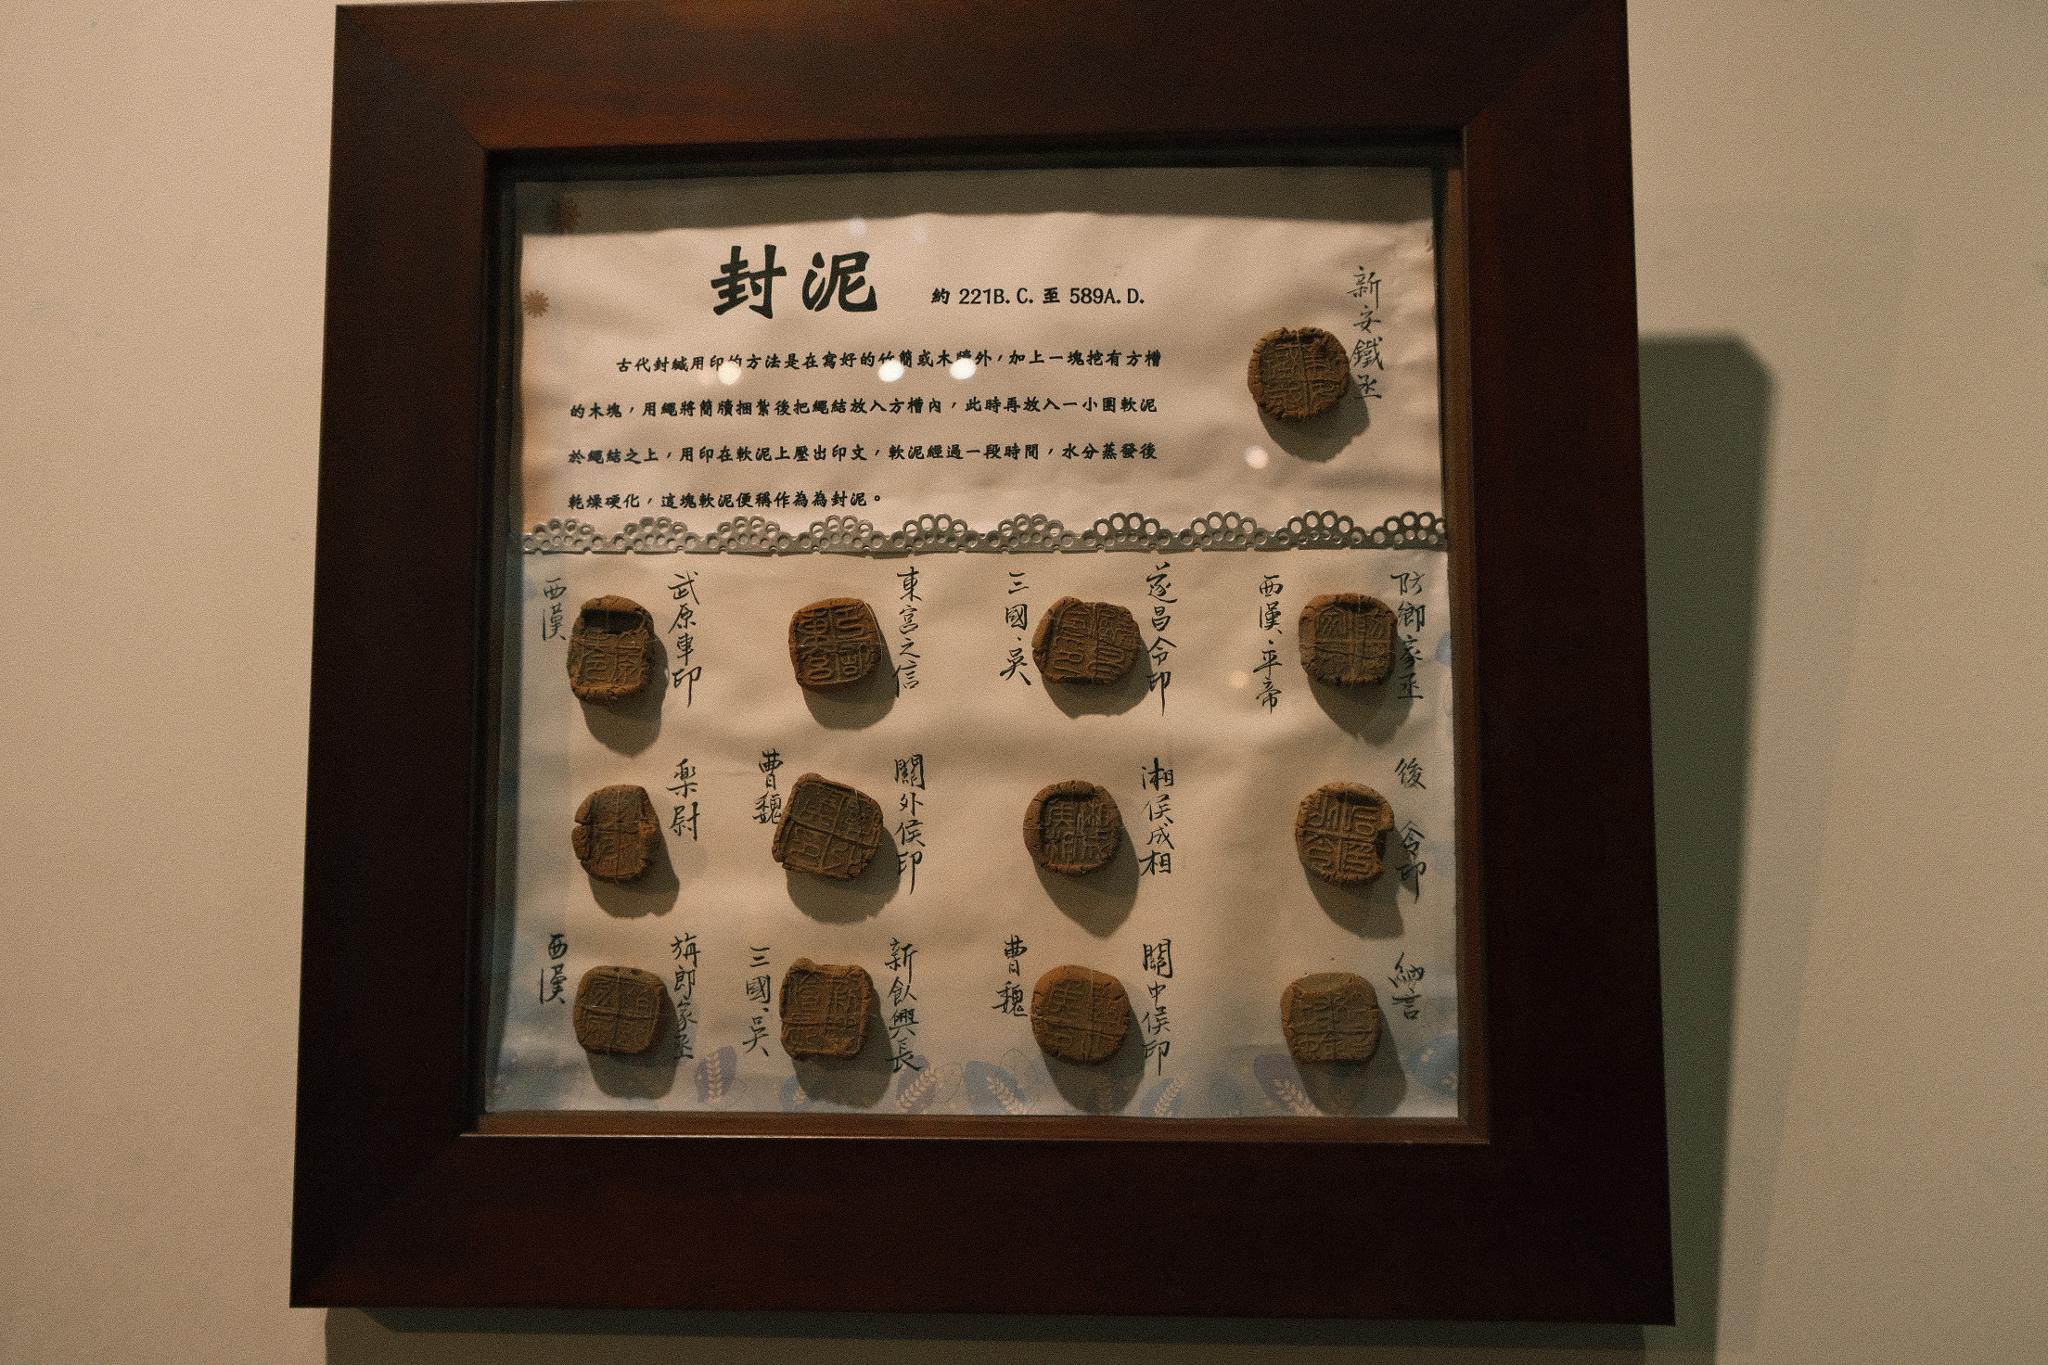 封泥 約 221B.C. 至 589A.D.
古代封緘用印的方法是在寫好的竹簡或木牘外，加上一塊挖有方槽
的木塊，用繩將簡牘捆紮後把繩結放入方槽內，此時再放入一小團軟泥
於繩結之上，用印在軟泥上壓出印文，軟泥經過一段時間，水分蒸發後
乾燥硬化，這塊軟泥便稱作為為封泥。
新安鐵丞
防鄉家丞
西漢．平帝
遂昌令印
三國．吳
東宮之信
武原車印
西漢
後 令印
湘侯成相
關外侯印
曹魏
樂尉
納言
關中侯印
曹魏
新飤興長
三國．吳
郎家丞
西漢